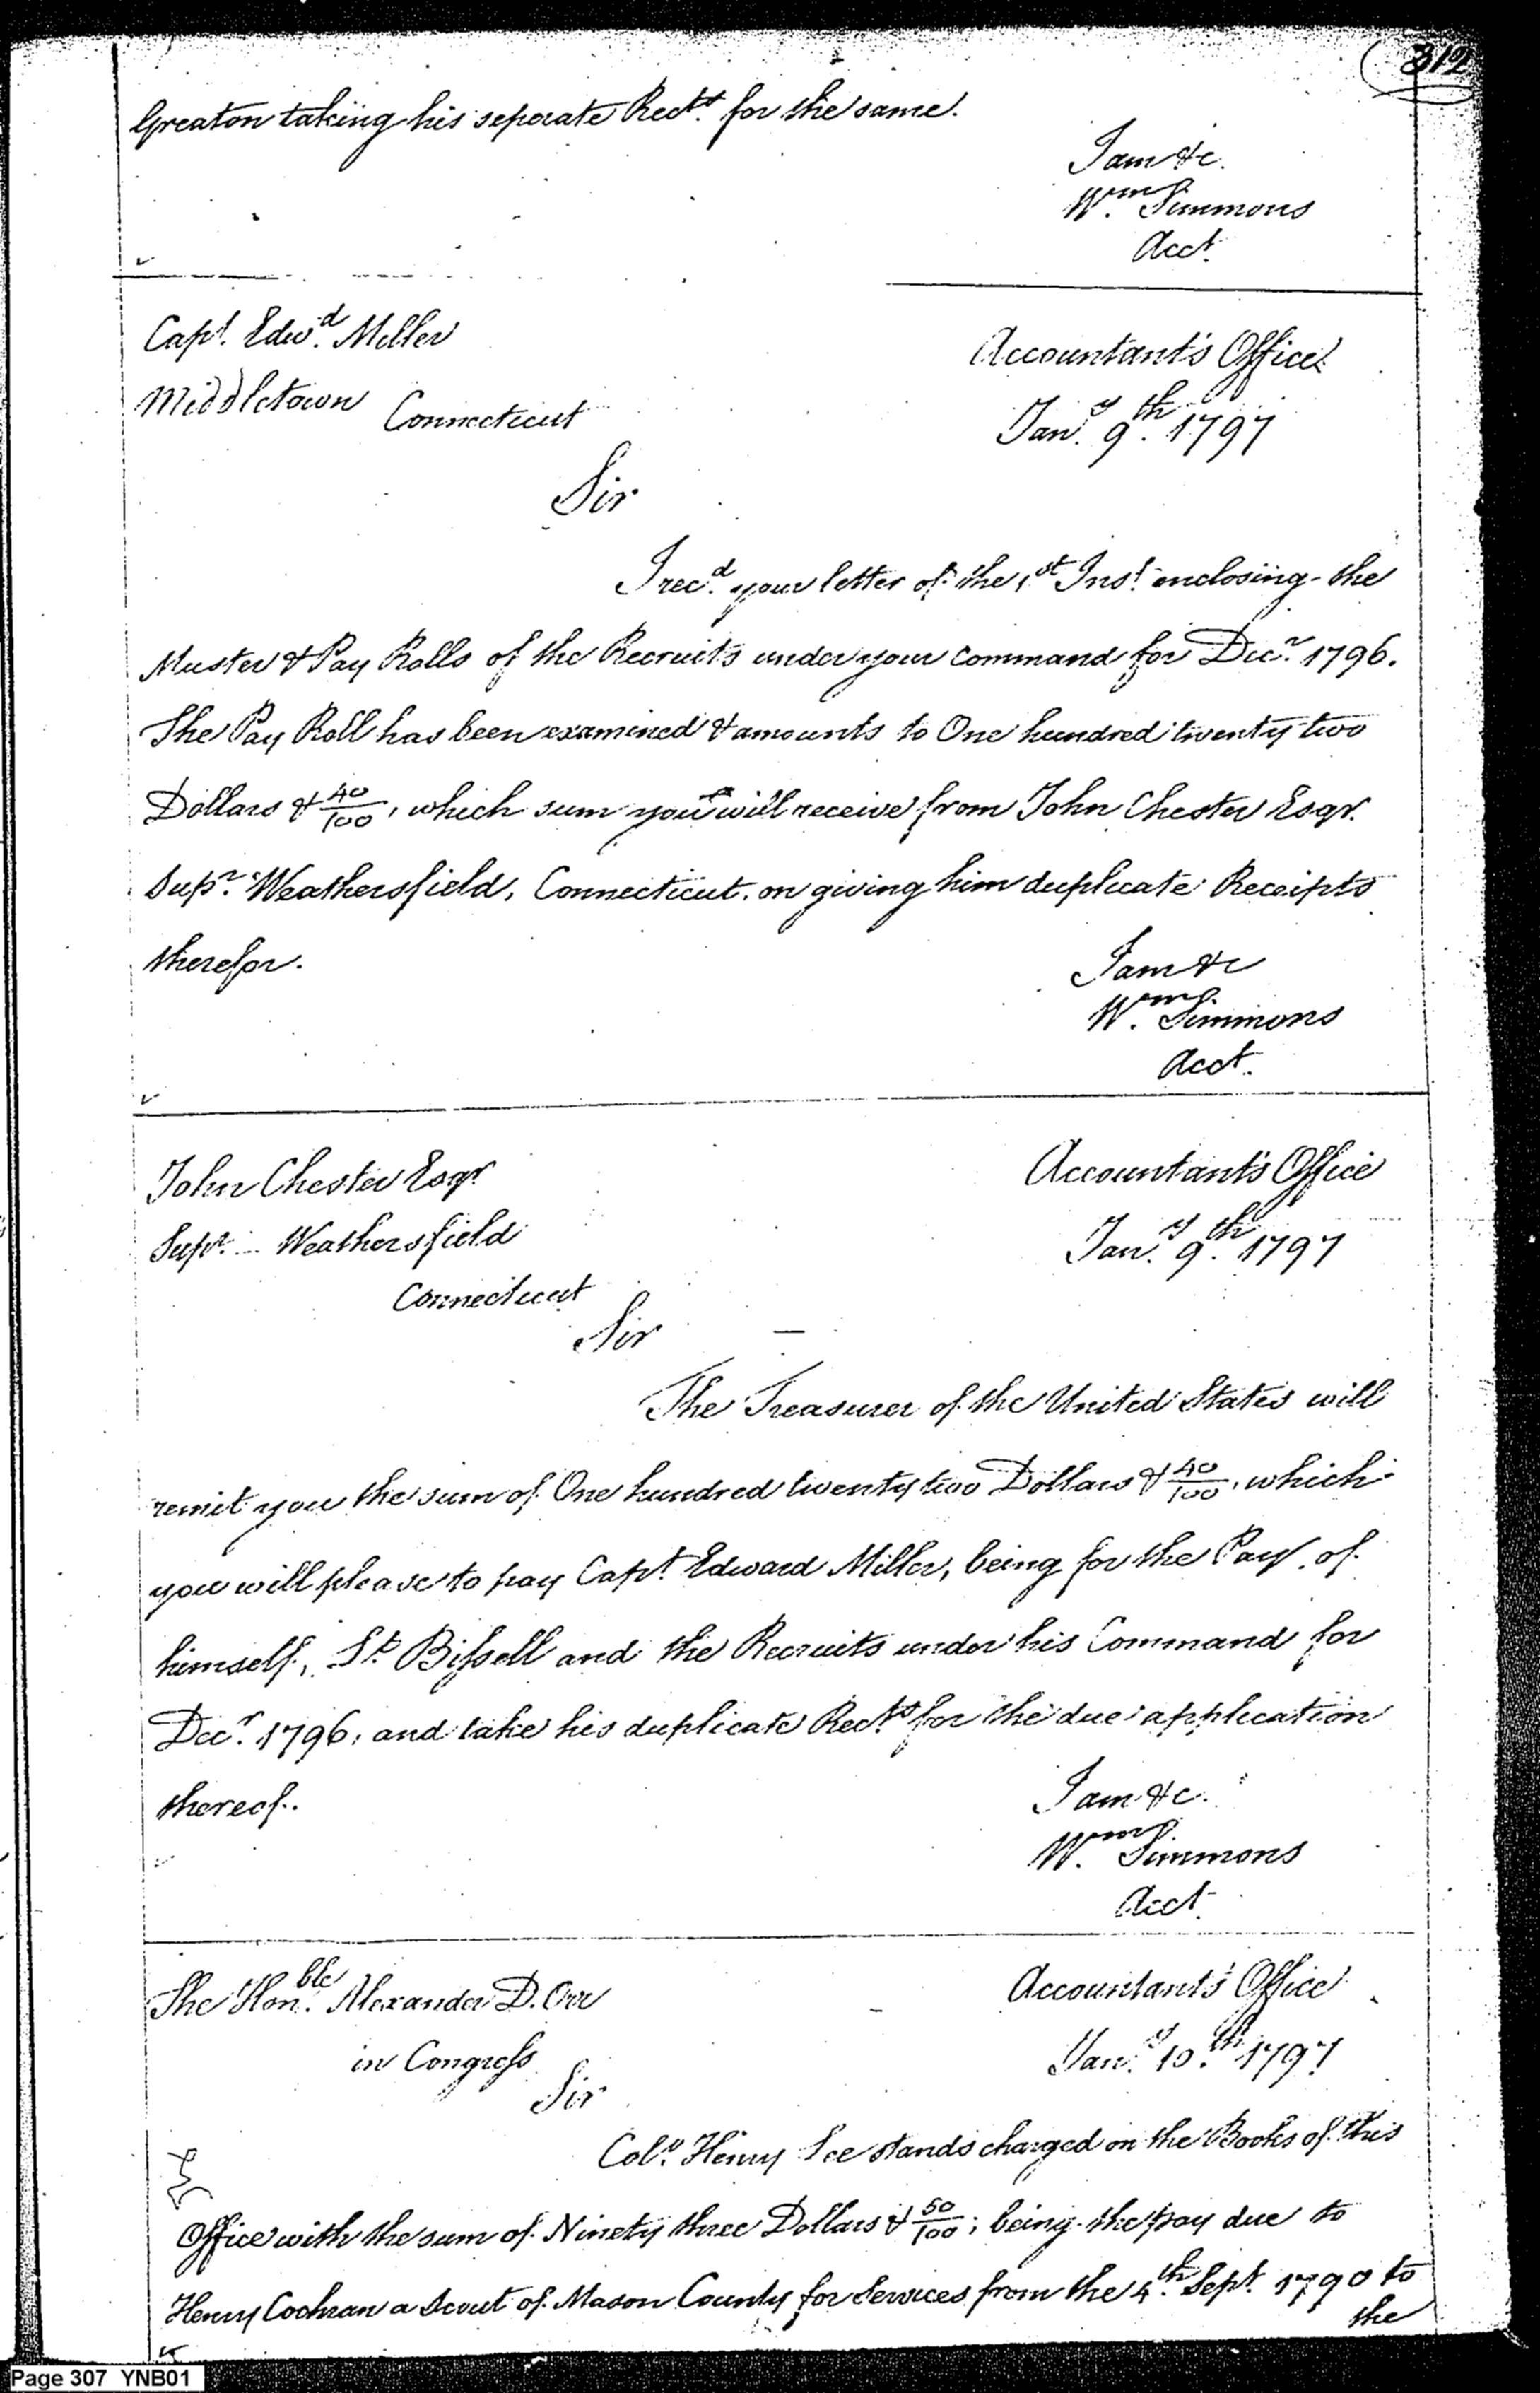 312
Greaton taking his seperate Rects. for the same.
I am &c.
Wm. Simmons
Acct.
Capt. Edwd. Miller
Accountant's Office
Middletown Connecticut
Jany. 9th. 1797
Sir
I recd. your letter of the 1st Inst. enclosing the
Muster & Pay Rolls of the Recruits under your command for Decr. 1796.
The Pay Roll has been examined & amounts to One hundred twenty two
Dollars & 40/100, which sum you will receive from John Chester Esqr.
Supr. Weathersfield, Connecticut. on giving him duplicate Receipts
therefor.
I am &c
Wm. Simmons
Acct.
John Chester Esqr.
Accountant's Office
Supr. - Weathersfield
Jany. 9th. 1797
Connecticut
Sir
The Treasurer of the United States will
remit you the sum of One hundred twenty two Dollars & 40/100, which
you will please to pay Capt. Edward Miller, being for the Pay of
himself, Lt. Bissell and the Recruits under his Command for
Decr. 1796, and take his duplicate Rects. for the due application
thereof.
I am &c.
Wm. Simmons
Acct.
The Honble. Alexander D. Orr
Accountant's Office
in Congress
Jany. 10th. 1797
Sir
Colo. Henry Lee stands charged on the Books of this
Office with the sum of Ninety three Dollars & 50/100; being the pay due to
Henry Cochran a Scout of Mason County for Services from the 4th. Sept. 1790 to
the
Page 307 YNB01